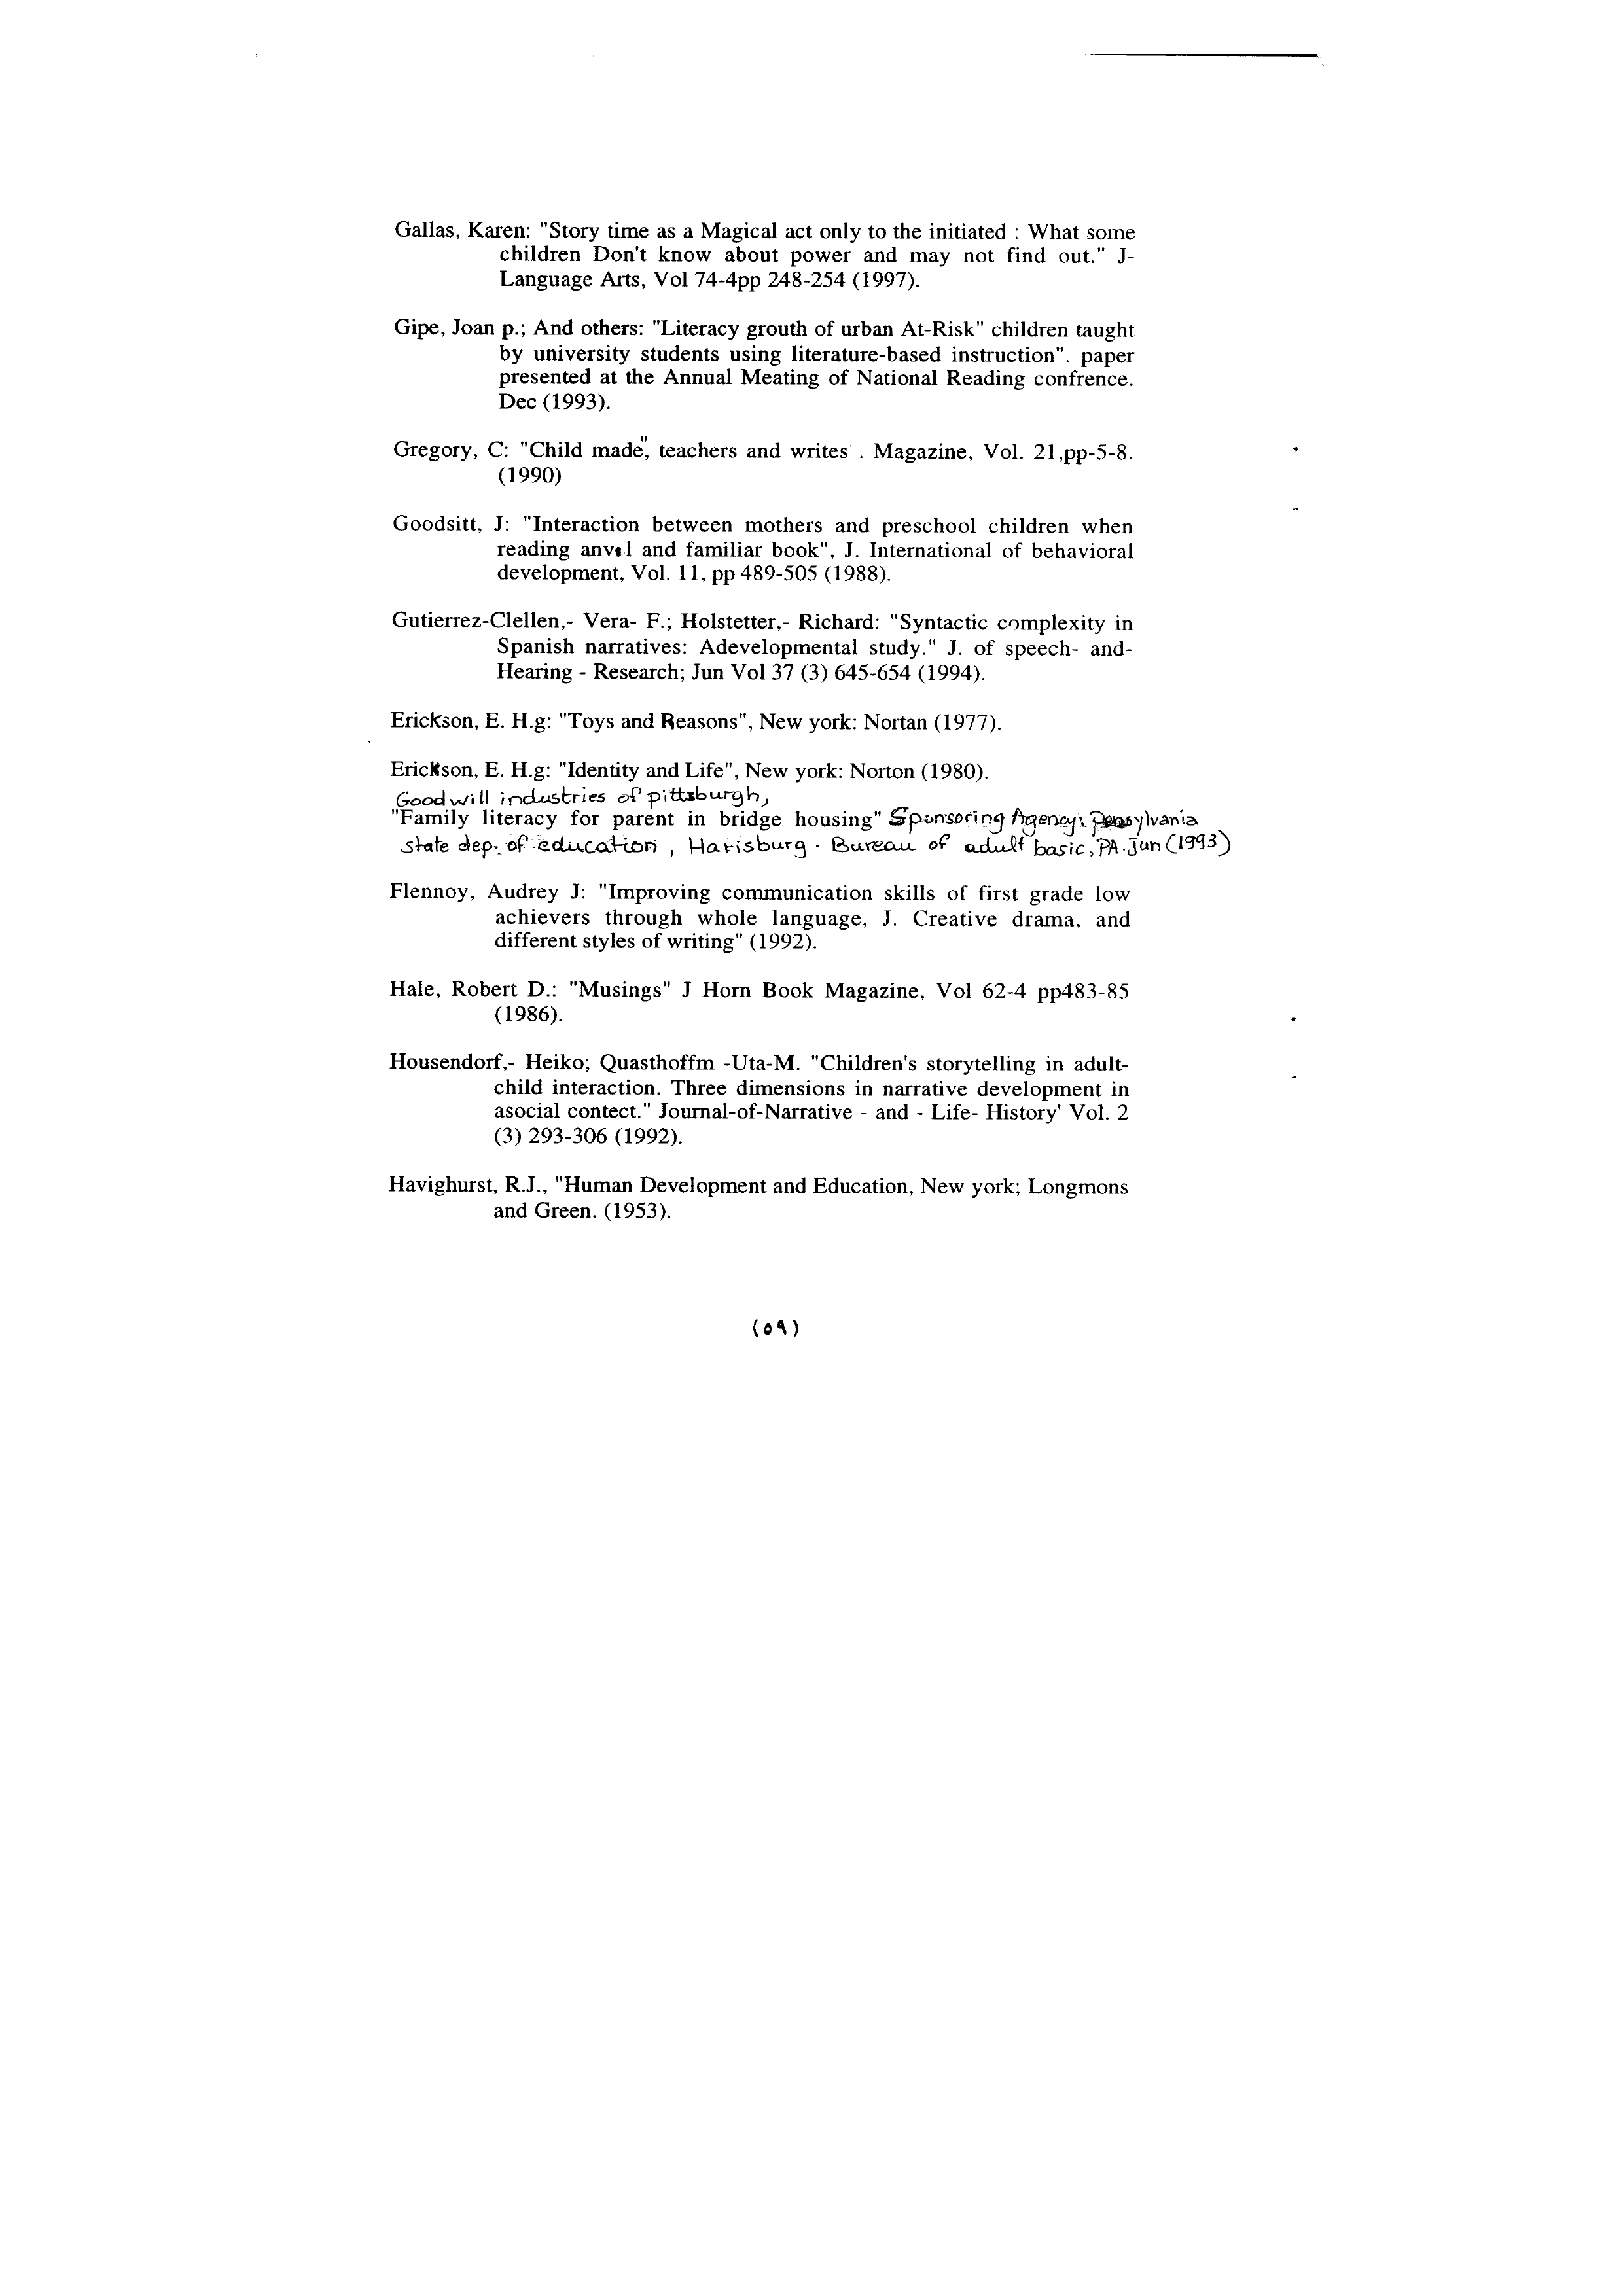 Gallas, Karen: "Story time as a Magical act only to the initiated : What some
children Don't know about power and may not find out." J-
Language Arts, Vol 74-4pp 248-254 (1997).
Gipe, Joan p.; And others: "Literacy grouth of urban At-Risk" children taught
by university students using literature-based instruction". paper
presented at the Annual Meating of National Reading confrence.
Dec (1993).
Gregory, C: "Child made", teachers and writes . Magazine, Vol. 21,pp-5-8.
(1990)
Goodsitt, J: "Interaction between mothers and preschool children when
reading and familiar book", J. International of behavioral
development, Vol. 11, pp 489-505 (1988).
Gutierrez-Clellen,- Vera- F.; Holstetter,- Richard: "Syntactic complexity in
Spanish narratives: Adevelopmental study." J. of speech- and-
Hearing - Research; Jun Vol 37 (3) 645-654 (1994).
Erickson, E. H.g: "Toys and Reasons", New york: Nortan (1977).
Erickson, E. H.g: "Identity and Life", New york: Norton (1980).
Goodwill industries of pittsburgh,
"Family literacy for parent in bridge housing" Sponsoring Agency: Pensylvania
state dep. of education, Harisburg. Bureau of adult basic, PA. Jun (1993)
Flennoy, Audrey J: "Improving communication skills of first grade low
achievers through whole language, J. Creative drama, and
different styles of writing" (1992).
Hale, Robert D.: "Musings" J Horn Book Magazine, Vol 62-4 pp483-85
(1986).
Housendorf,- Heiko; Quasthoffm -Uta-M. "Children's storytelling in adult-
child interaction. Three dimensions in narrative development in
asocial contect." Journal-of-Narrative - and - Life- History' Vol. 2
(3) 293-306 (1992).
Havighurst, R.J., "Human Development and Education, New york; Longmons
and Green. (1953).
(٥٩)